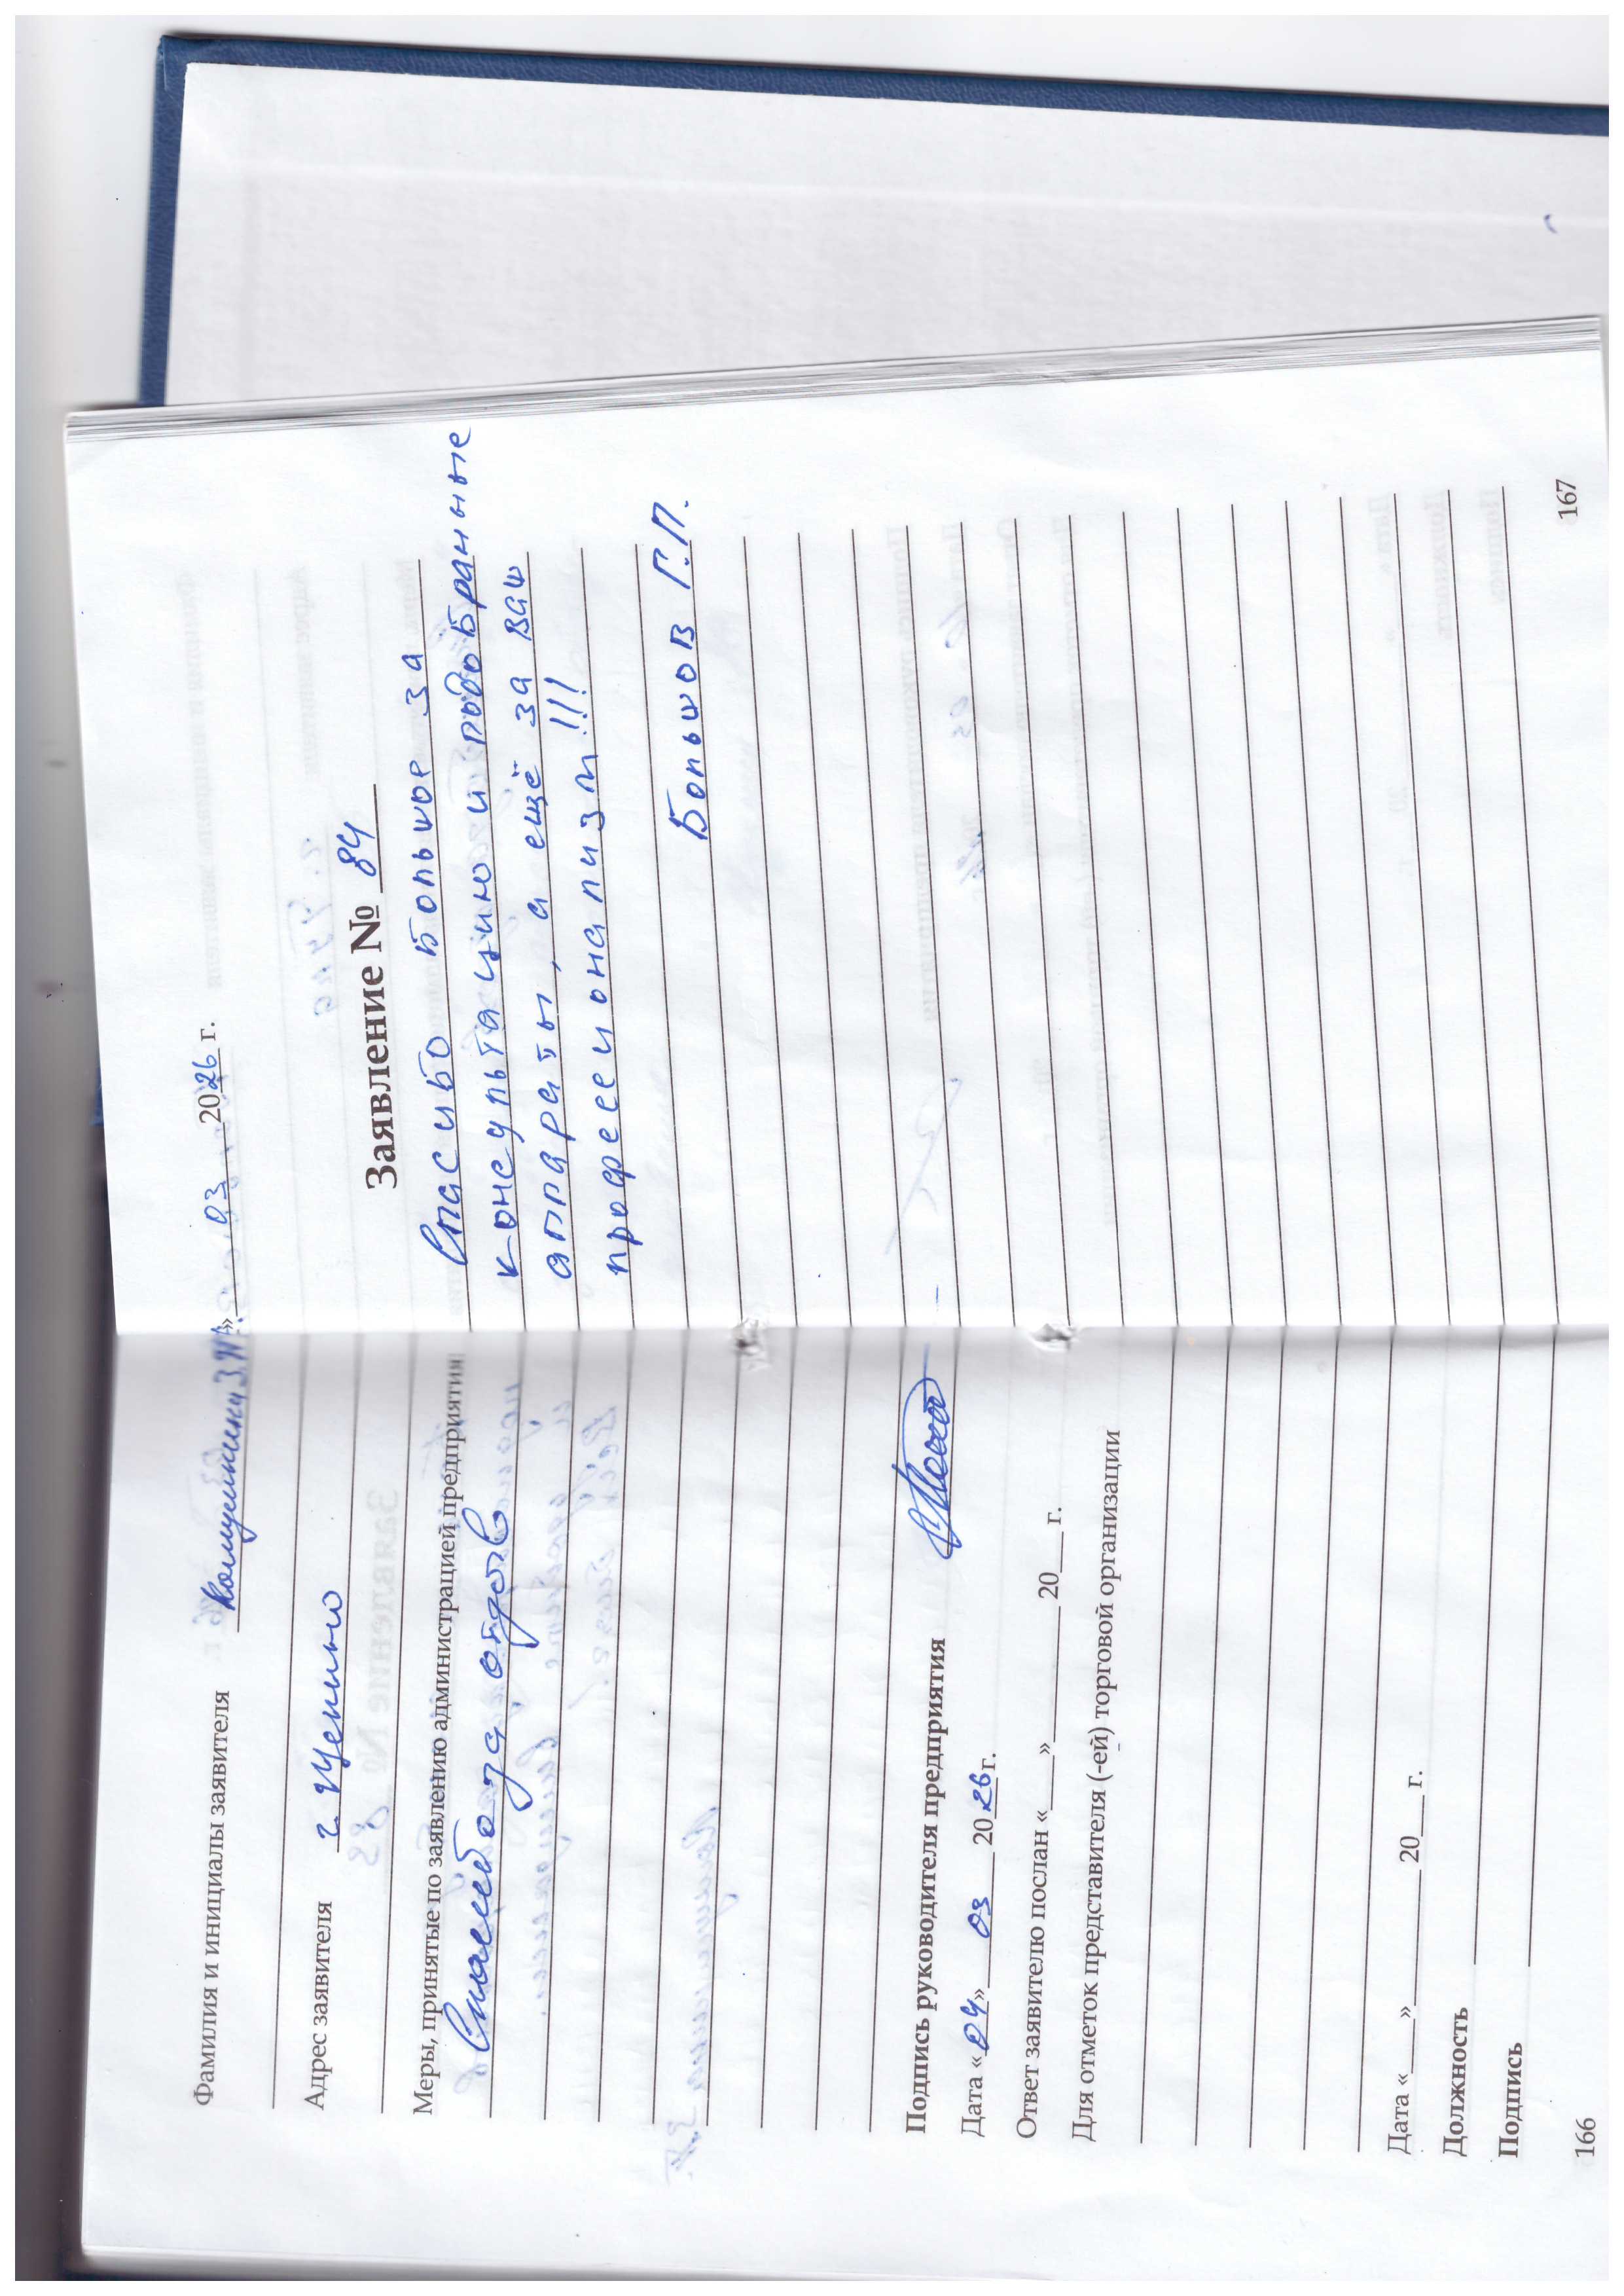 Фамилия и инициалы заявителя
Адрес заявителя г. Щекино
Меры, принятые по заявлению администрацией предприятия
Спасибо за отзыв
Подпись руководителя предприятия
Дата «04» 03 2026г.
Ответ заявителю послан «___»________ 20___ г.
Для отметок представителя (-ей) торговой организации
Дата «____»________ 20___ г.
Должность
Подпись
166
» 03 2026 г.
Заявление № 84
Спасибо большое за
консультацию и подобранные
аппараты, а ещё за ваш
профессионализм!!!
Большов Г.П.
167